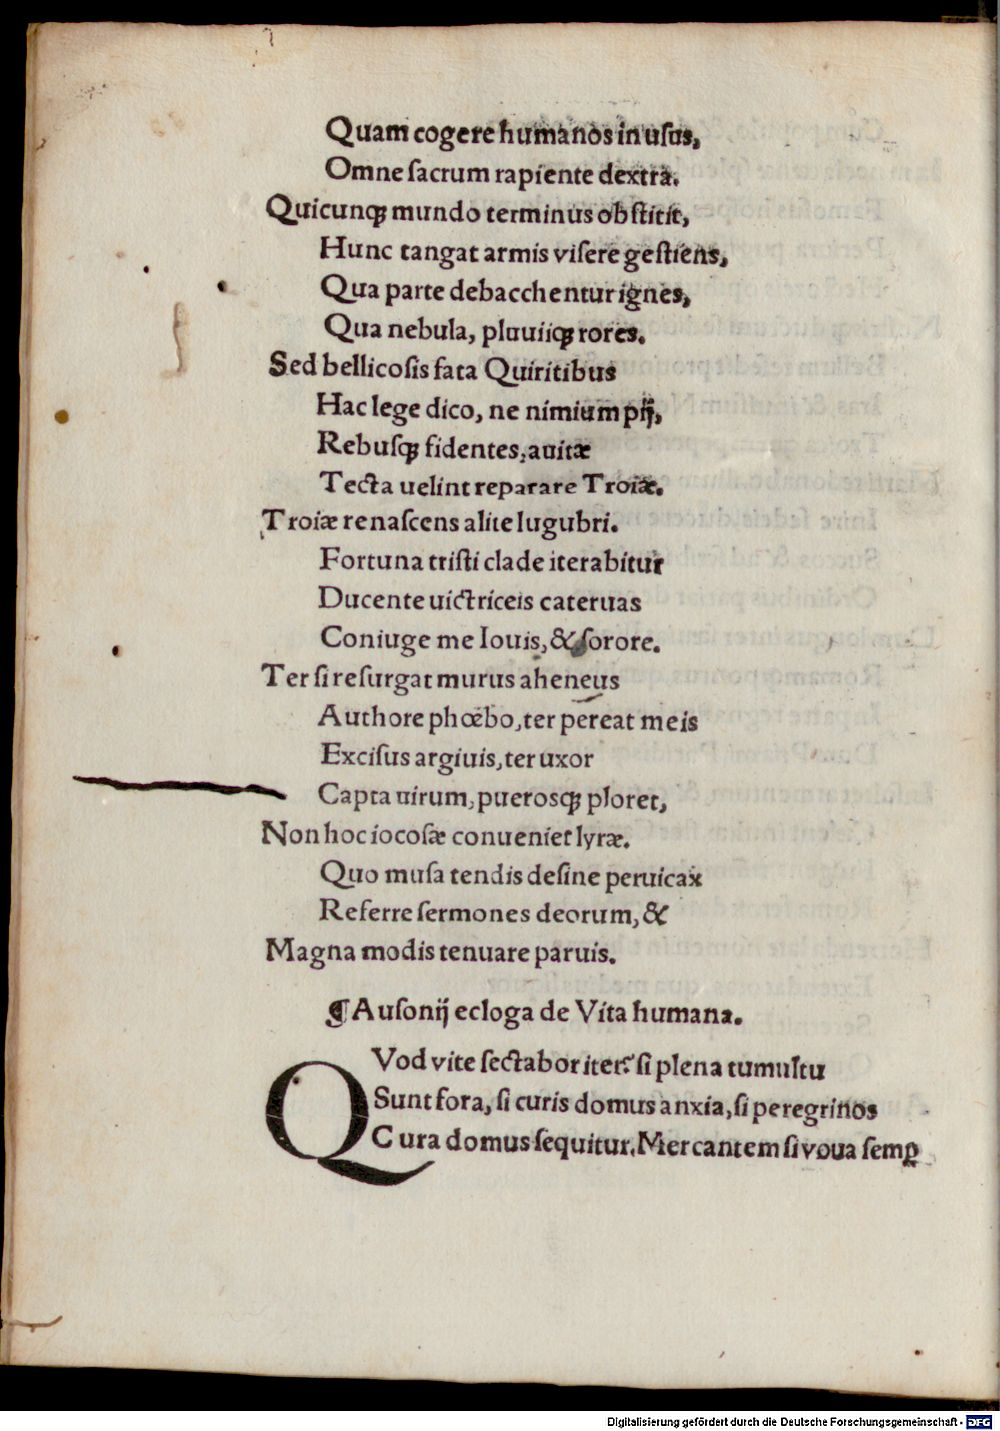 Quam cogere humanos in usus,
Omne ſacrum rapiente dextra.
Quicunqꝫ mundo terminus obſtitit,
Hunc tangat armis viſere geſtiens,
Qua parte debacchentur ignes,
Qua nebula, pluuiiqꝫ rores.
Sed bellicoſis fata Quiritibus
Hac lege dico, ne nimium pij,
Rebuſqꝫ fidentes, auitæ
Tecta uelint reparare Troiæ.
Troiæ renaſcens alite lugubri.
Fortuna triſti clade iterabitur
Ducente uictriceis cateruas
Coniuge me Iouis, & ſorore.
Ter ſi reſurgat murus aheneus
Authore phœbo, ter pereat meis
Exciſus argiuis, ter uxor
Capta uirum, puerosqꝫ ploret,
Non hoc iocoſæ conueniet lyræ.
Quo muſa tendis deſine peruicax
Referre ſermones deorum, &
Magna modis tenuare paruis.
¶ Auſonij ecloga de Vita humana.
QVod vite ſectabor iter? ſi plena tumultu
Sunt fora, ſi curis domus anxia, ſi peregrinos
Cura domus ſequitur. Mercantem ſi voua ſemꝑ
Digitalisierung gefördert durch die Deutsche Forschungsgemeinschaft - DFG